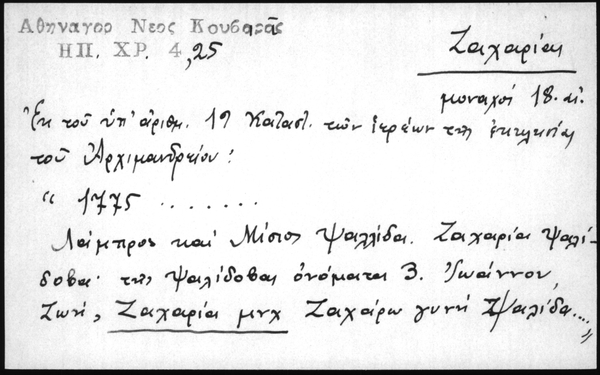 Αθηναγορ Νεος Κουβαρᾶς
ΗΠ. ΧΡ. 4, 25
Ζαχαρίας
μοναχοί 18. αἰ.
Ἐκ τοῦ ὑπ' ἀριθμ. 19 Καταστ. τῶν ἱερέων τῆς ἐκκλησίας
τοῦ Ἀρχιμανδρείου:
“ 1775 . . . . . . .
Λάμπρος καὶ Μίσιος Ψαλλίδα. Ζαχαρία Ψαλί-
δοβα· τῆς Ψαλίδοβας ὀνόματα 3. Ἰωάννου,
Ζωή, Ζαχαρία μνχ Ζαχάρω γυνή Ψαλίδα....”